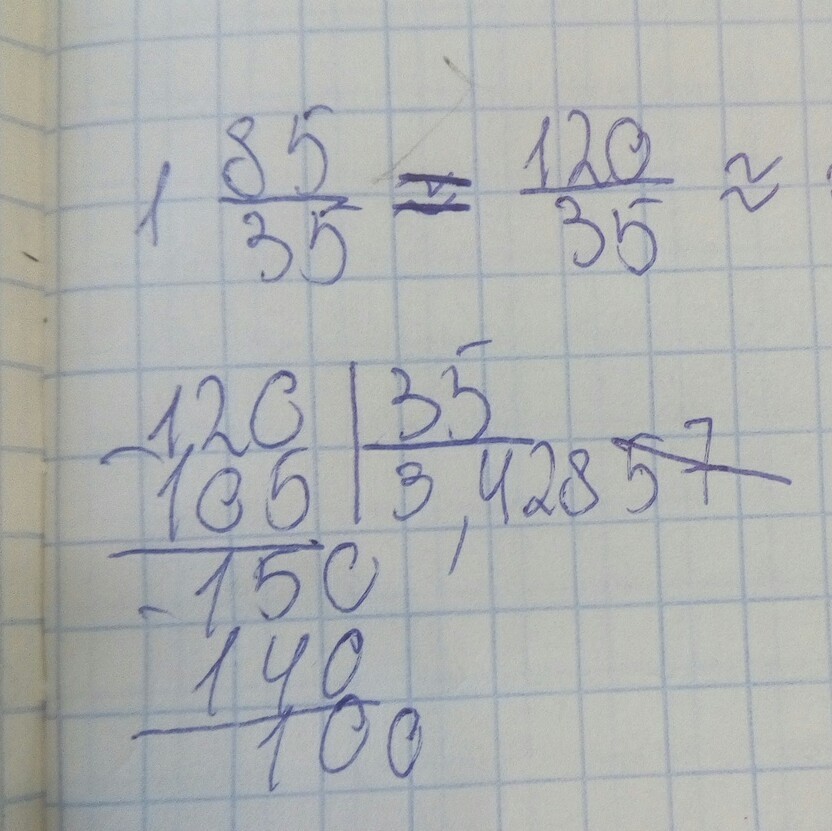 1 85/35 = 120/35 ≈
120 | 35
105 | 3,42857
-150
140
100